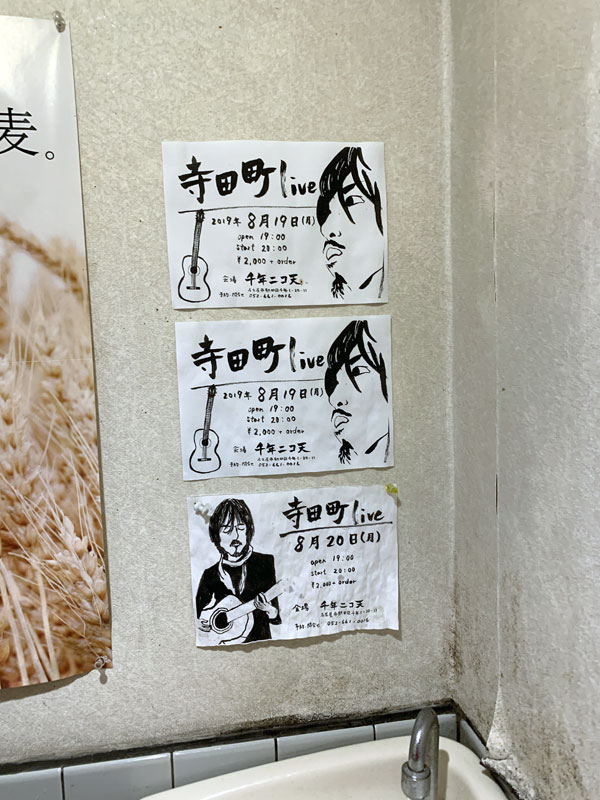 麦。
寺田町live
2019年 8月19日(月)
open 19:00
start 20:00
¥2,000+order
会場 千年ニコ天
予約・問合せ 052-661-0016
寺田町live
2019年 8月19日(月)
open 19:00
start 20:00
¥2,000+order
会場 千年ニコ天
予約・問合せ 052-661-0016
寺田町live
8月20日(月)
open 19:00
start 20:00
¥2,000+order
会場 千年ニコ天
予約・問合せ 052-661-0016